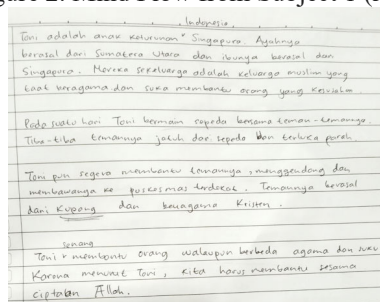 Indonesia,
Toni adalah anak keturunan Singapura. Ayahnya
berasal dari Sumatera Utara dan ibunya berasal dari
Singapura. Mereka sekeluarga adalah keluarga muslim yang
taat beragama dan suka membantu orang yang
Pada suatu hari Toni bermain sepeda bersama teman-temannya.
Tiba-tiba temannya jatuh dari sepeda dan terluka parah.
Toni pun segera membantu temannya, menggendong dan
membawanya ke puskesmas terdekat. Temannya berasal
dari Kupang dan beragama Kristen.
senang
Toni membantu orang walaupun berbeda agama dan suku
Karena menurut Toni, kita harus membantu sesama
ciptaan Allah.